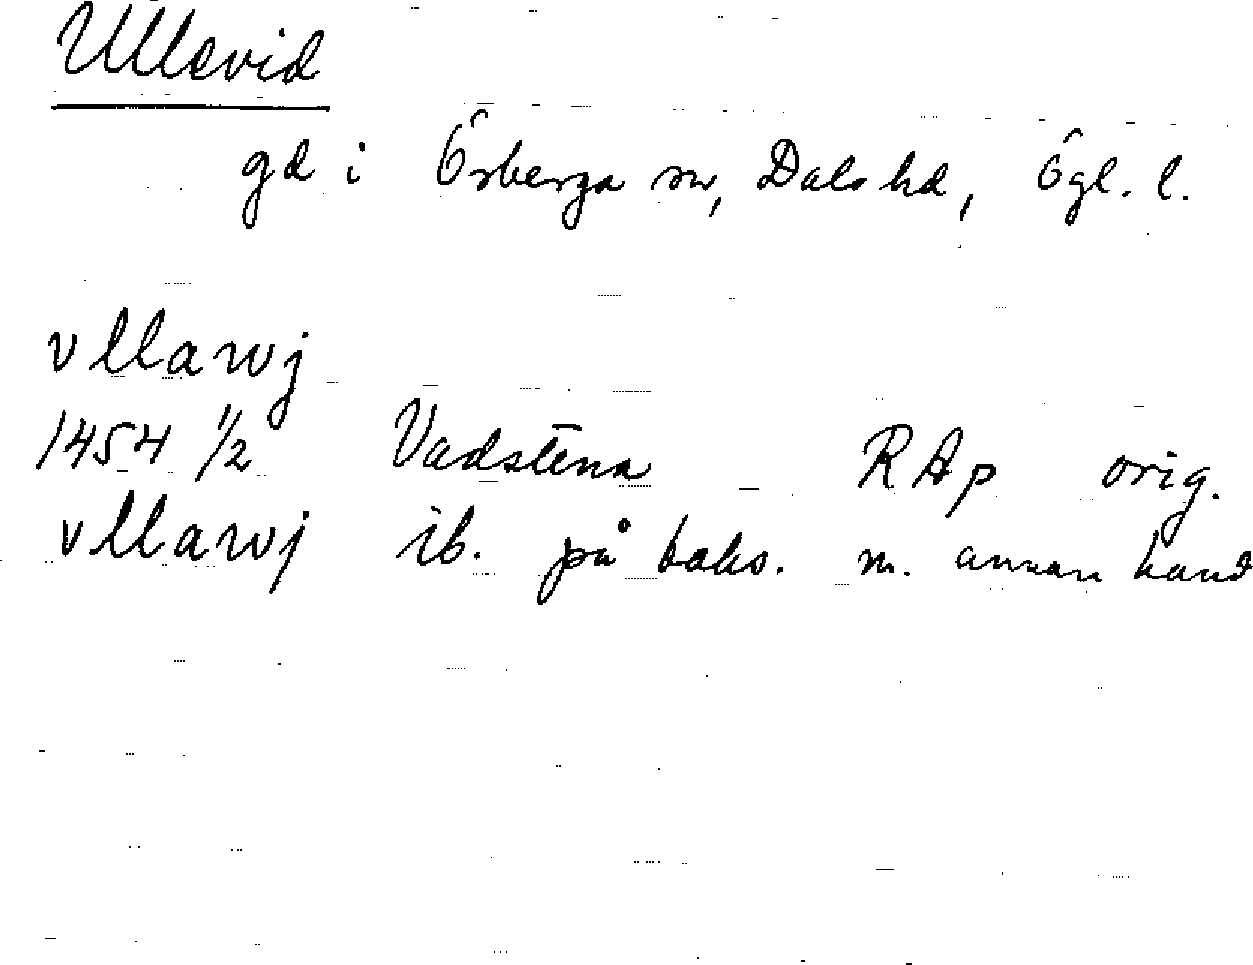 Ullevid
gd i Örberga sn, Dals hd, Ögl. l.
vllawj
1454 1/2 Vadstena RAp orig.
vllawj ib. på baks. m. annan hand